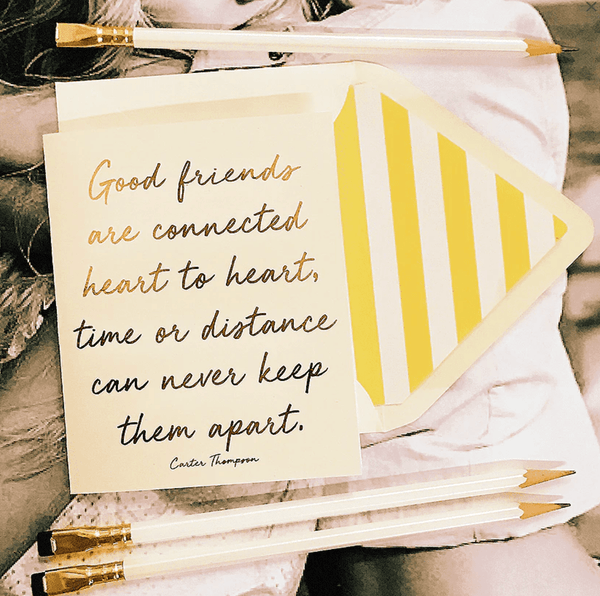 Good friends
are connected
heart to heart,
time or distance
can never keep
them apart.
Carter Thompson